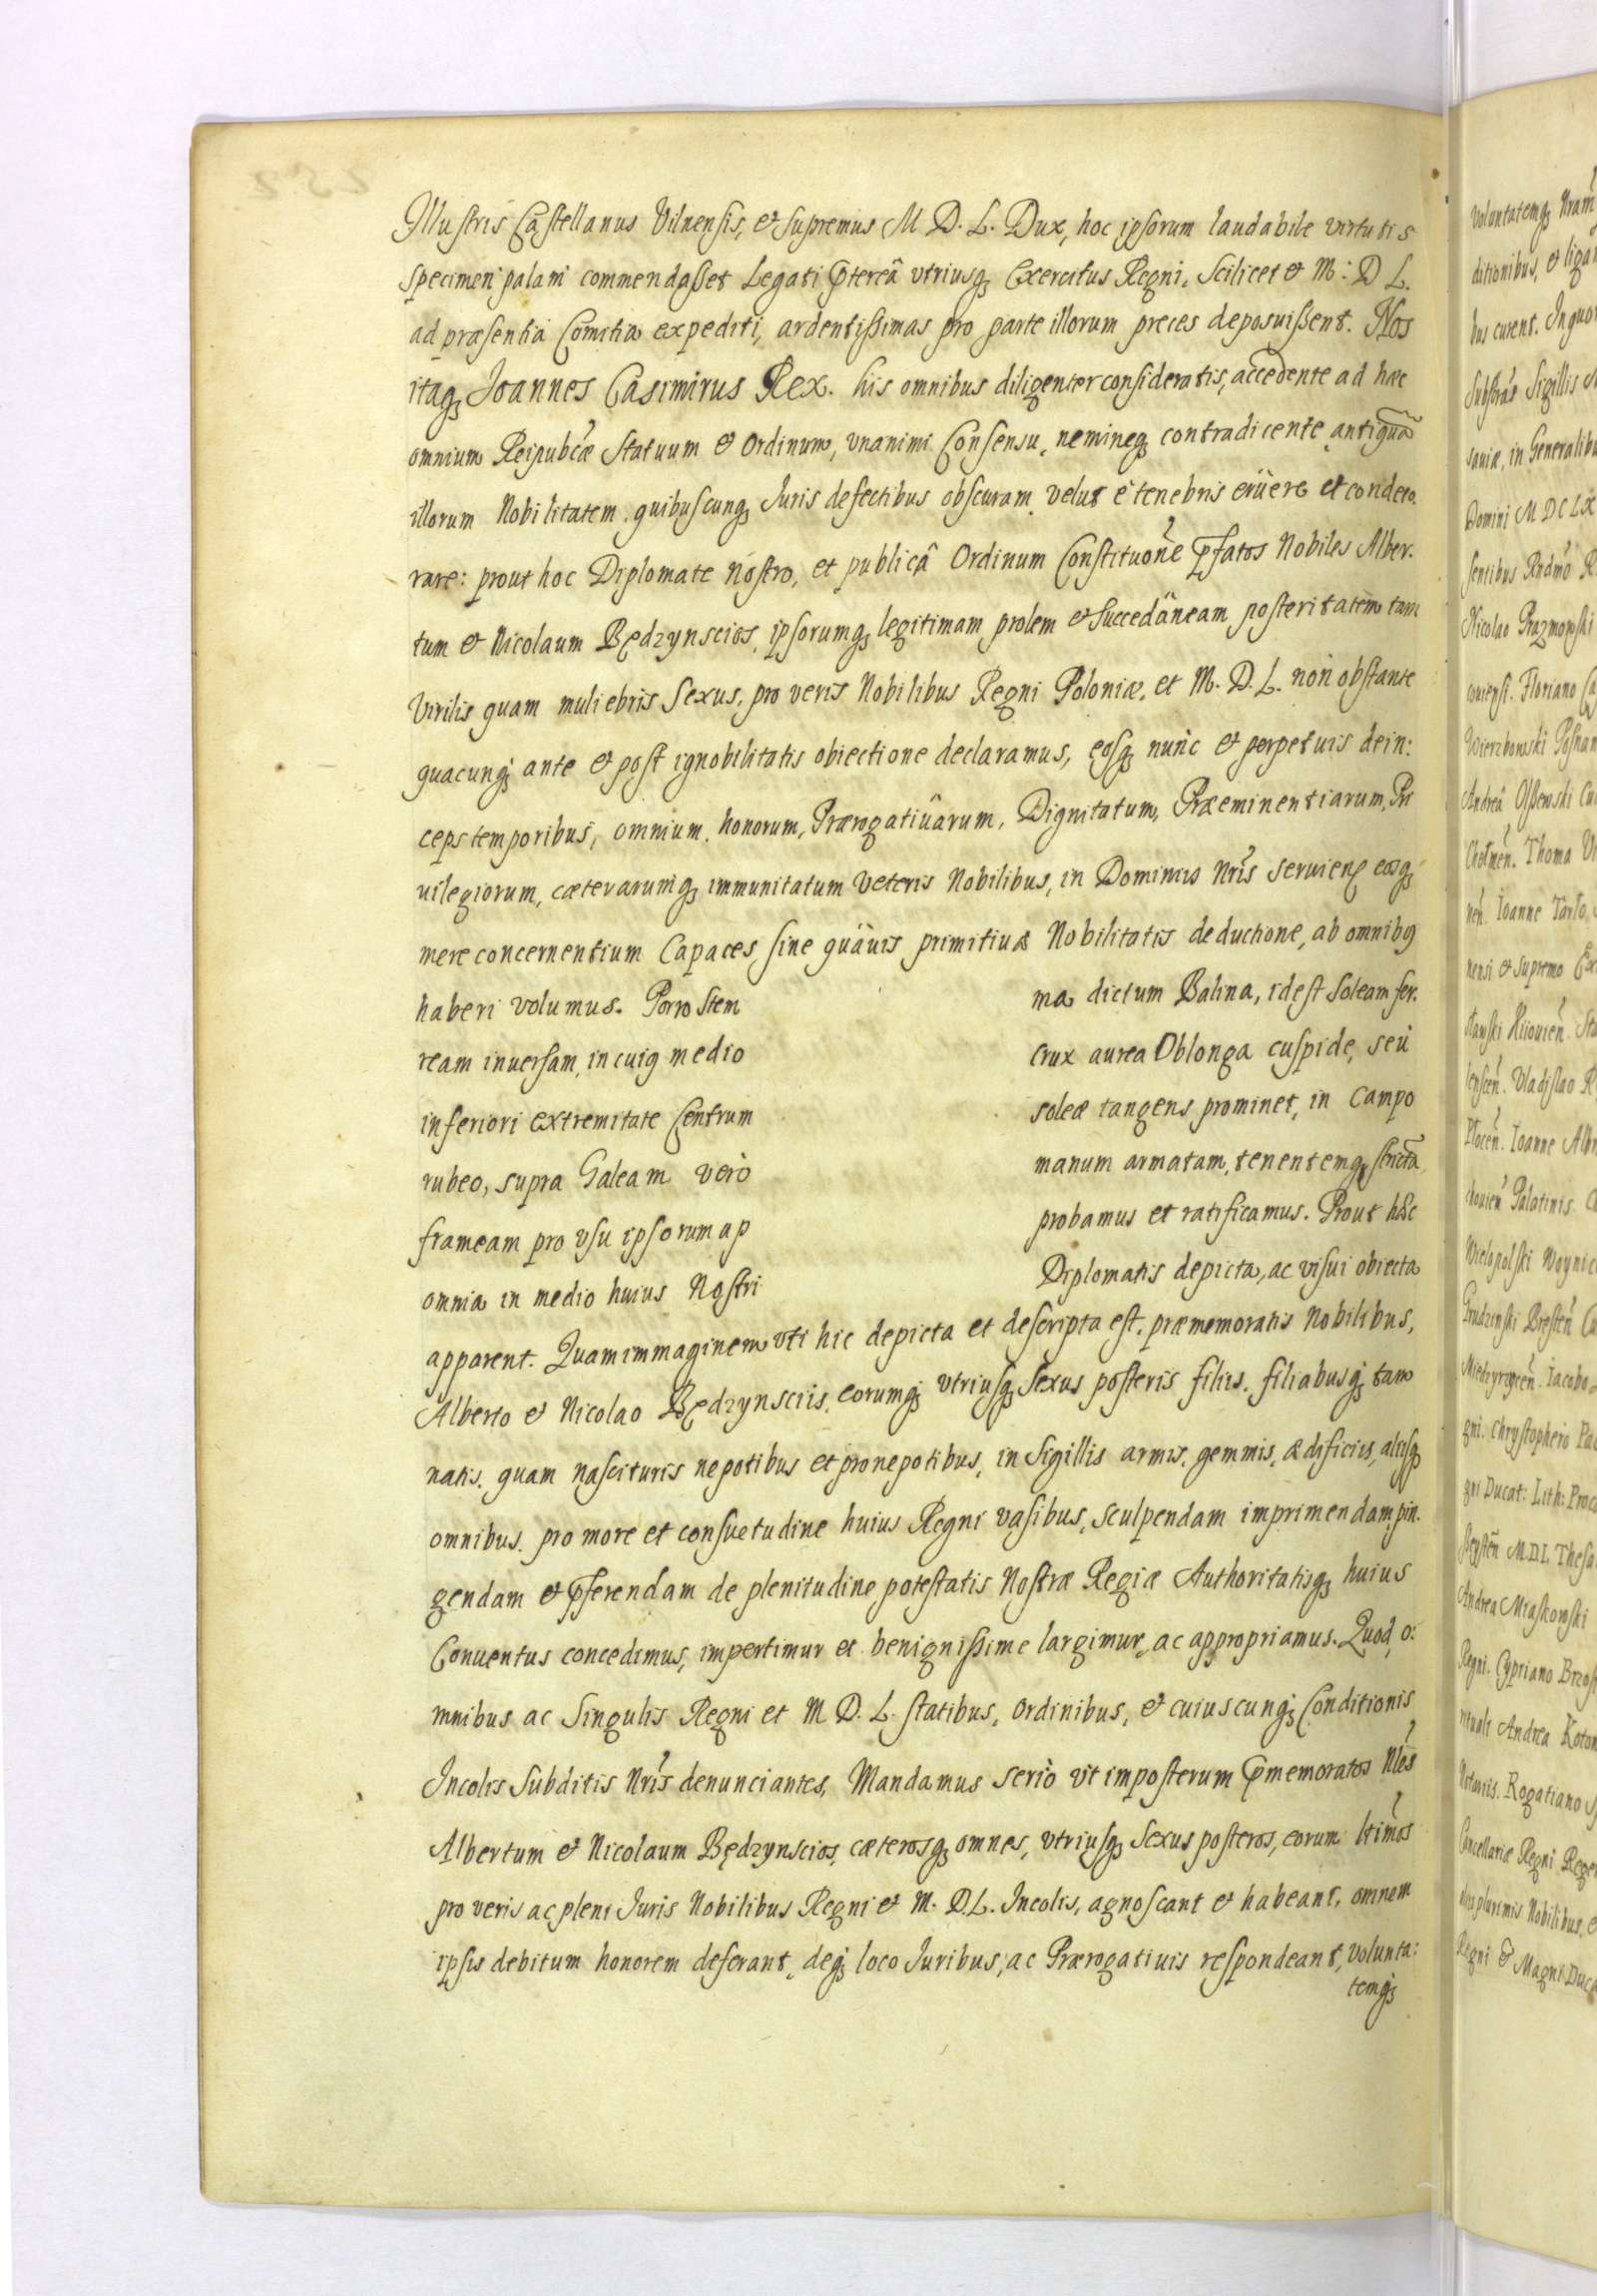 Illustris Castellanus Vilnensis, et supremus M D. L. Dux, hoc ipsorum laudabile virtutis
specimen palam commendasset Legati p̄tereâ vtriusq; Exercitus Regni, scilicet et M: D L.
ad præsentia Comitia expediti, ardentissimas pro parte illorum preces deposuissent. Nos
itaq; Ioannes Casimirus Rex. his omnibus diligenter consideratis, accedente ad hæc
omnium Reipubcæ Statuum et Ordinum, vnanimi Consensu, nemineq; contradicente antiquã
illorum Nobilitatem, quibuscunq; Iuris defectibus obscuram, velut è tenebris erüere et condeco.
rare: prout hoc Diplomate nostro, et publicâ Ordinum Constituone p̄fatos Nobiles Alber.
tum et Nicolaum Będzynscios, ipsorumq; legitimam prolem et succedäneam posteritatem tam
virilis quam muliebris sexus, pro veris Nobilibus Regni Poloniæ, et M. D. L. non obstante
quacunq; ante et post ignobilitatis obiectione declaramus, eosq; nunc et perpetuis dein:
ceps temporibus, omnium, honorum, Prærogatiuârum, Dignitatum, Præeminentiarum, Pri
uilegiorum, cæterarumq; immunitatum veteris Nobilibus, in Dominiis Nris seruien eosq;
mere concernentium Capaces, sine quäuis primitiuæ Nobilitatis deductione, ab omnibq
haberi volumus. Porro Stem ma dictum Balina, idest Soleam fer.
ream inuersam, in cuig medio crux aurea Oblonga cuspide, seù
inferiori extremitate Centrum soleæ tangens prominet, in Campo
rubeo, supra Galeam verò manum armatam, tenentemq; strictã
frameam pro vsu ipsorum ap probamus et ratificamus. Prout hæc
omnia in medio huius Nostri Diplomatis depicta, ac visui obiecta
apparent. Quam immaginem vti hic depicta et descripta est, præmemoratis Nobilibus,
Alberto et Nicolao Będzynsciis, eorumq; vtriusq; Sexus posteris filiis, filiabusq; tam
natis, quam nascituris nepotibus et pronepotibus, in Sigillis armis, gemmis, ædificiis, aliisq;
omnibus, pro more et consuetudine huius Regni vasibus, sculpendam imprimendam, pin.
gendam et p̄ferendam de plenitudine potestatis Nostræ Regiæ Authoritatisq; huius
Conuentus concedimus, impertimur et benignissime largimur, ac appropriamus. Quod, o:
mnibus ac Singulis Regni et M D. L. statibus, Ordinibus, et cuiuscunq; Conditionis
Incolis Subditis Nris denunciantes, Mandamus seriò vt imposterum p̄memoratos Nles
Albertum et Nicolaum Będzynscios, cæterosq; omnes, vtriusq; Sexus posteros, eorum ltimos
pro veris ac pleni Iuris Nobilibus Regni et M. D.L. Incolis, agnoscant et habeant, omnem
ipsis debitum honorem deferant, deq; loco Iuribus, ac Prærogatiuis respondeant, volunta:
temq;
voluntatemq; Nram
ditionibus, et
bus curent. In quo
Sigillis
sauiæ, in Generalibu
Domini M DC LX
sentibus Rndmo
Nicolao Prazmowski
Floriano
Wierzbowski Posnan
Andreâ Olszewski
Thoma
Ioanne Tarło
nensi et supremo
Kiiouien
Vladislao
Płocen. Ioanne
Palatinis
Wielopolski Woynic
Grudzinski Bresten
Iacobo
gni. Chrystophero Pac
gni Ducat: Lith: Proc
M.D.L. Thesa
Andrea Miaskowski
Regni. Cypriano Brzos
Andrea Koton
Notariis. Rogatiano
Cancellariæ Regni Rege
plurimis Nobilibus
Regni et Magni Duca